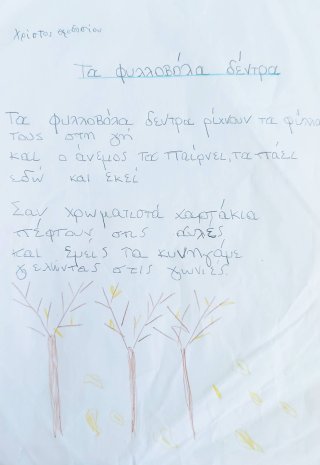 Χρίστος
Τα φυλλοβόλα δέντρα
Τα φυλλοβόλα δεντρα ρίχνουν τα φύλλα
τους στη γή
και ο άνεμος τα παίρνει, τα πάει
εδώ και εκεί
Σαν χρωματιστά χαρτάκια
πέφτουν στις αυλές
και εμείς τα κυνηγάμε
γελώντας στις γωνιές.